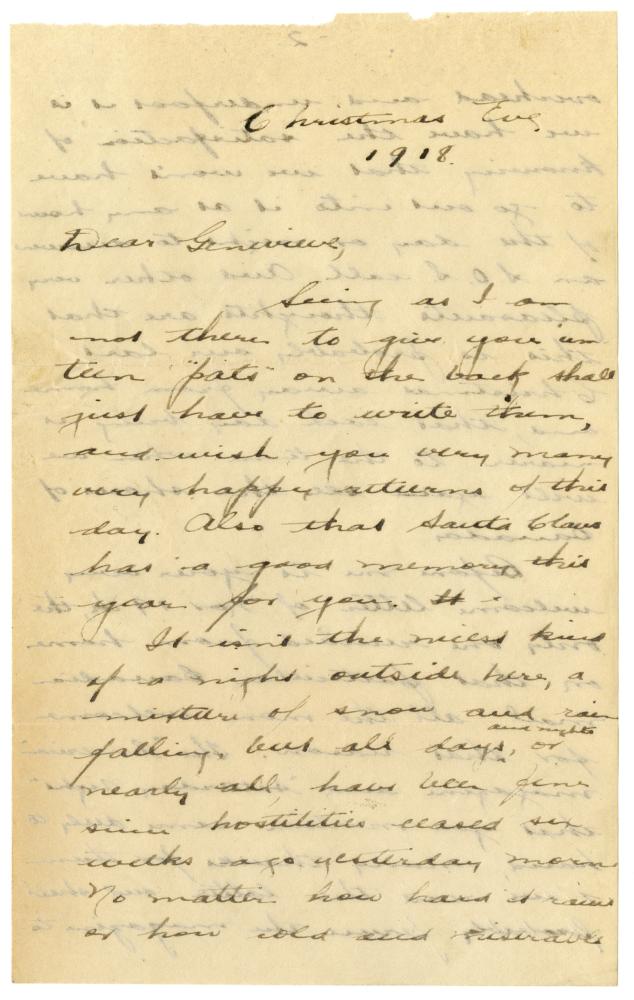 Christmas Eve
1918.
Dear Genevieve,
Seeing as I am
not there to give you um
teen "pats" on the back shall
just have to write them,
and wish you very many
very happy returns of this
day. Also that Santa Claus
has a good memory this
year for you. It
It isn't the nicest kind
of a night outside here, a
mixture of snow and rain
falling, but all days, and nights or
nearly all, have been fine
since hostilities ceased six
weeks ago yesterday morn.
No matter how hard it rains
or how cold and miserable